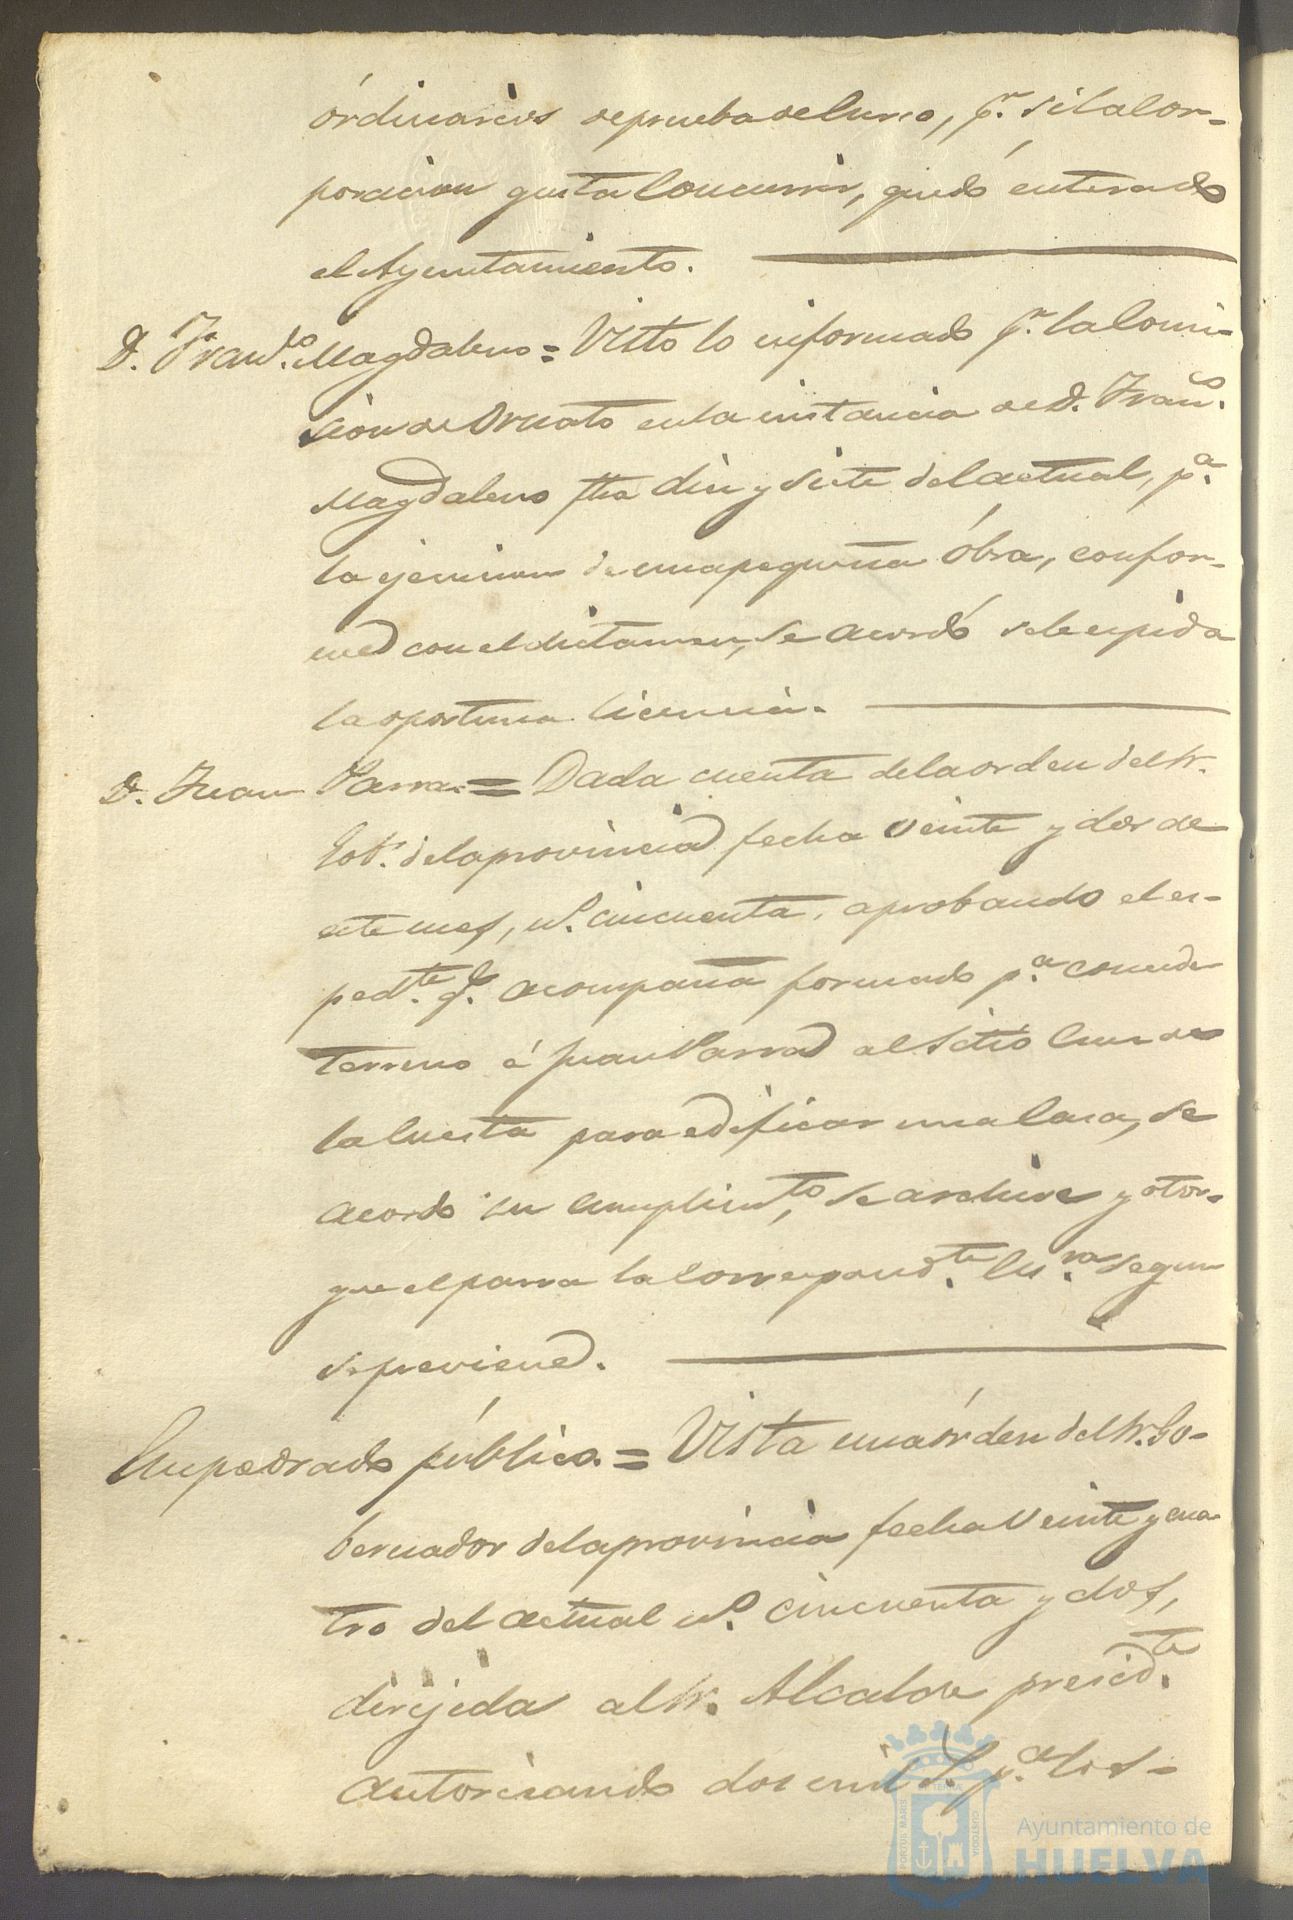 órdinarios de prueba de Curso, pr. si la Cor-
poracion gusta Concurrir, quedó enterado
el Ayuntamiento.
D. Franco. Magdaleno = Visto lo informado pr. la Comi-
sion de Ornato en la instancia de D. Franco.
Magdaleno fha diez y siete del actual, pa.
la ejecucion de una pequeña óbra, confor-
me con el dictamen, se acordó se le expida
la oportuna licencia.
D. Juan Parra = Dada cuenta de la orden del Sr.
Gobr. de la provincia fecha veinte y dos de
este mes, no. cincuenta, aprobando el es-
pedte. qe. acompaña formado pa. conceder
terreno á Juan Parra al Sitio de
la Cuesta para edificar una Casa, se
acordó su cumplimto, se archive y otor-
gue el parra la Correspondte. Esra. segun
se previene.
Empedrado público = Vista una órden del Sr. Go-
bernador de la provincia fecha Veinte y cua-
tro del actual no. cincuenta y dos,
dirijida al Sr. Alcalde presidte.
autorizando dos mil rs. pa. los-
Ayuntamiento de
HUELVA
PORTUS MARIS
CUSTODIA